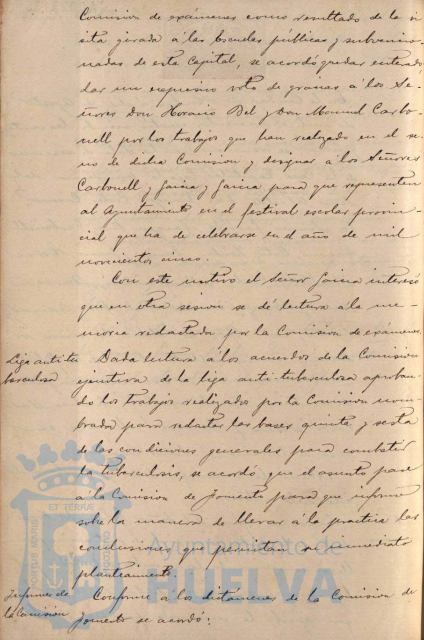 Comision de exámenes como resultado de la vi
sita girada á las Escuelas públicas y subvencio-
nadas de esta Capital, se acordó quedar enterado
dar un expresivo voto de gracias á los Se-
ñores don Horacio Bel y Don Manuel Carbo-
nell por los trabajos que han realizado en el se-
no de dicha Comision y designar á los Señores
Carbonell y Garcia y Garcia para que representen
al Ayuntamiento en el festival escolar provin-
cial que ha de celebrarse en el año de mil
novecientos cinco.
Con este motivo el Señor Garcia interesó
que en otra sesion se dé lectura á la me-
moria redactada por la Comision de exámenes.
Liga anti-tu
berculosa
Dada lectura á los acuerdos de la Comision
ejecutiva de la liga anti-tuberculosa aproban-
do los trabajos realizados por la Comision nom-
brada para redactar las bases quinta y sesta
de las condiciones generales para combatir
la tuberculosis, se acordó que el asunto pase
á la Comision de Fomento para que informe
sobre la manera de llevar á la practica las
conclusiones que permitan su inmediato
planteamiento.
Informes de
la Comision
Conforme á los dictamenes de la Comision de
Fomento se acordó:
Ayuntamiento de
HUELVA
ET TERRAE
PORTUS MARIS
CUSTODIO